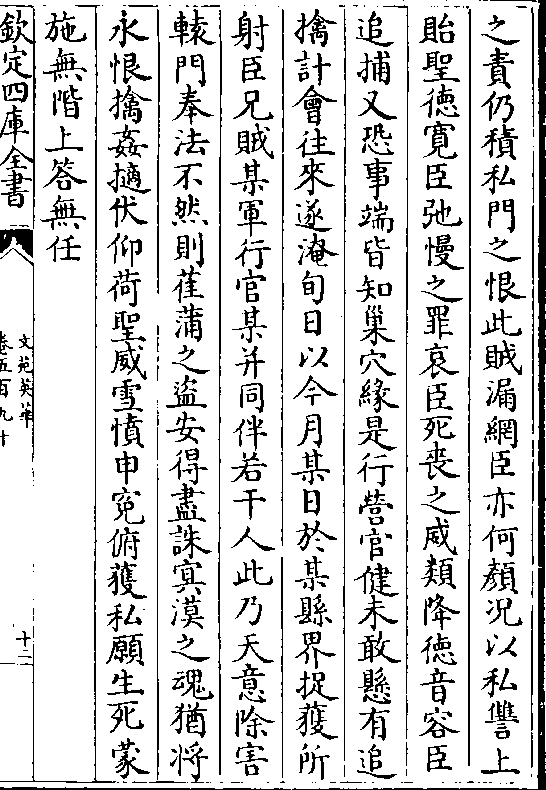 之責仍積私門之恨此賊漏網臣亦何顏況以私讐上
貽聖德寛臣弛慢之罪哀臣死喪之威類降德音容臣
追捕又恐事端皆知巢穴緣是行營官健未敢懸有追
擒計會往來遂淹旬日以今月某日於某縣界捉獲所
射臣兄賊某軍行官某并同伴若干人此乃天意除害
轅門奉法不然則萑蒲之盜安得盡誅冥漠之魂猶將
永恨擒姦擿伏仰荷聖威雪憤申寃俯獲私願生死蒙
施無階上答無任
欽定四庫全書
文苑英華
卷五百九十
十二